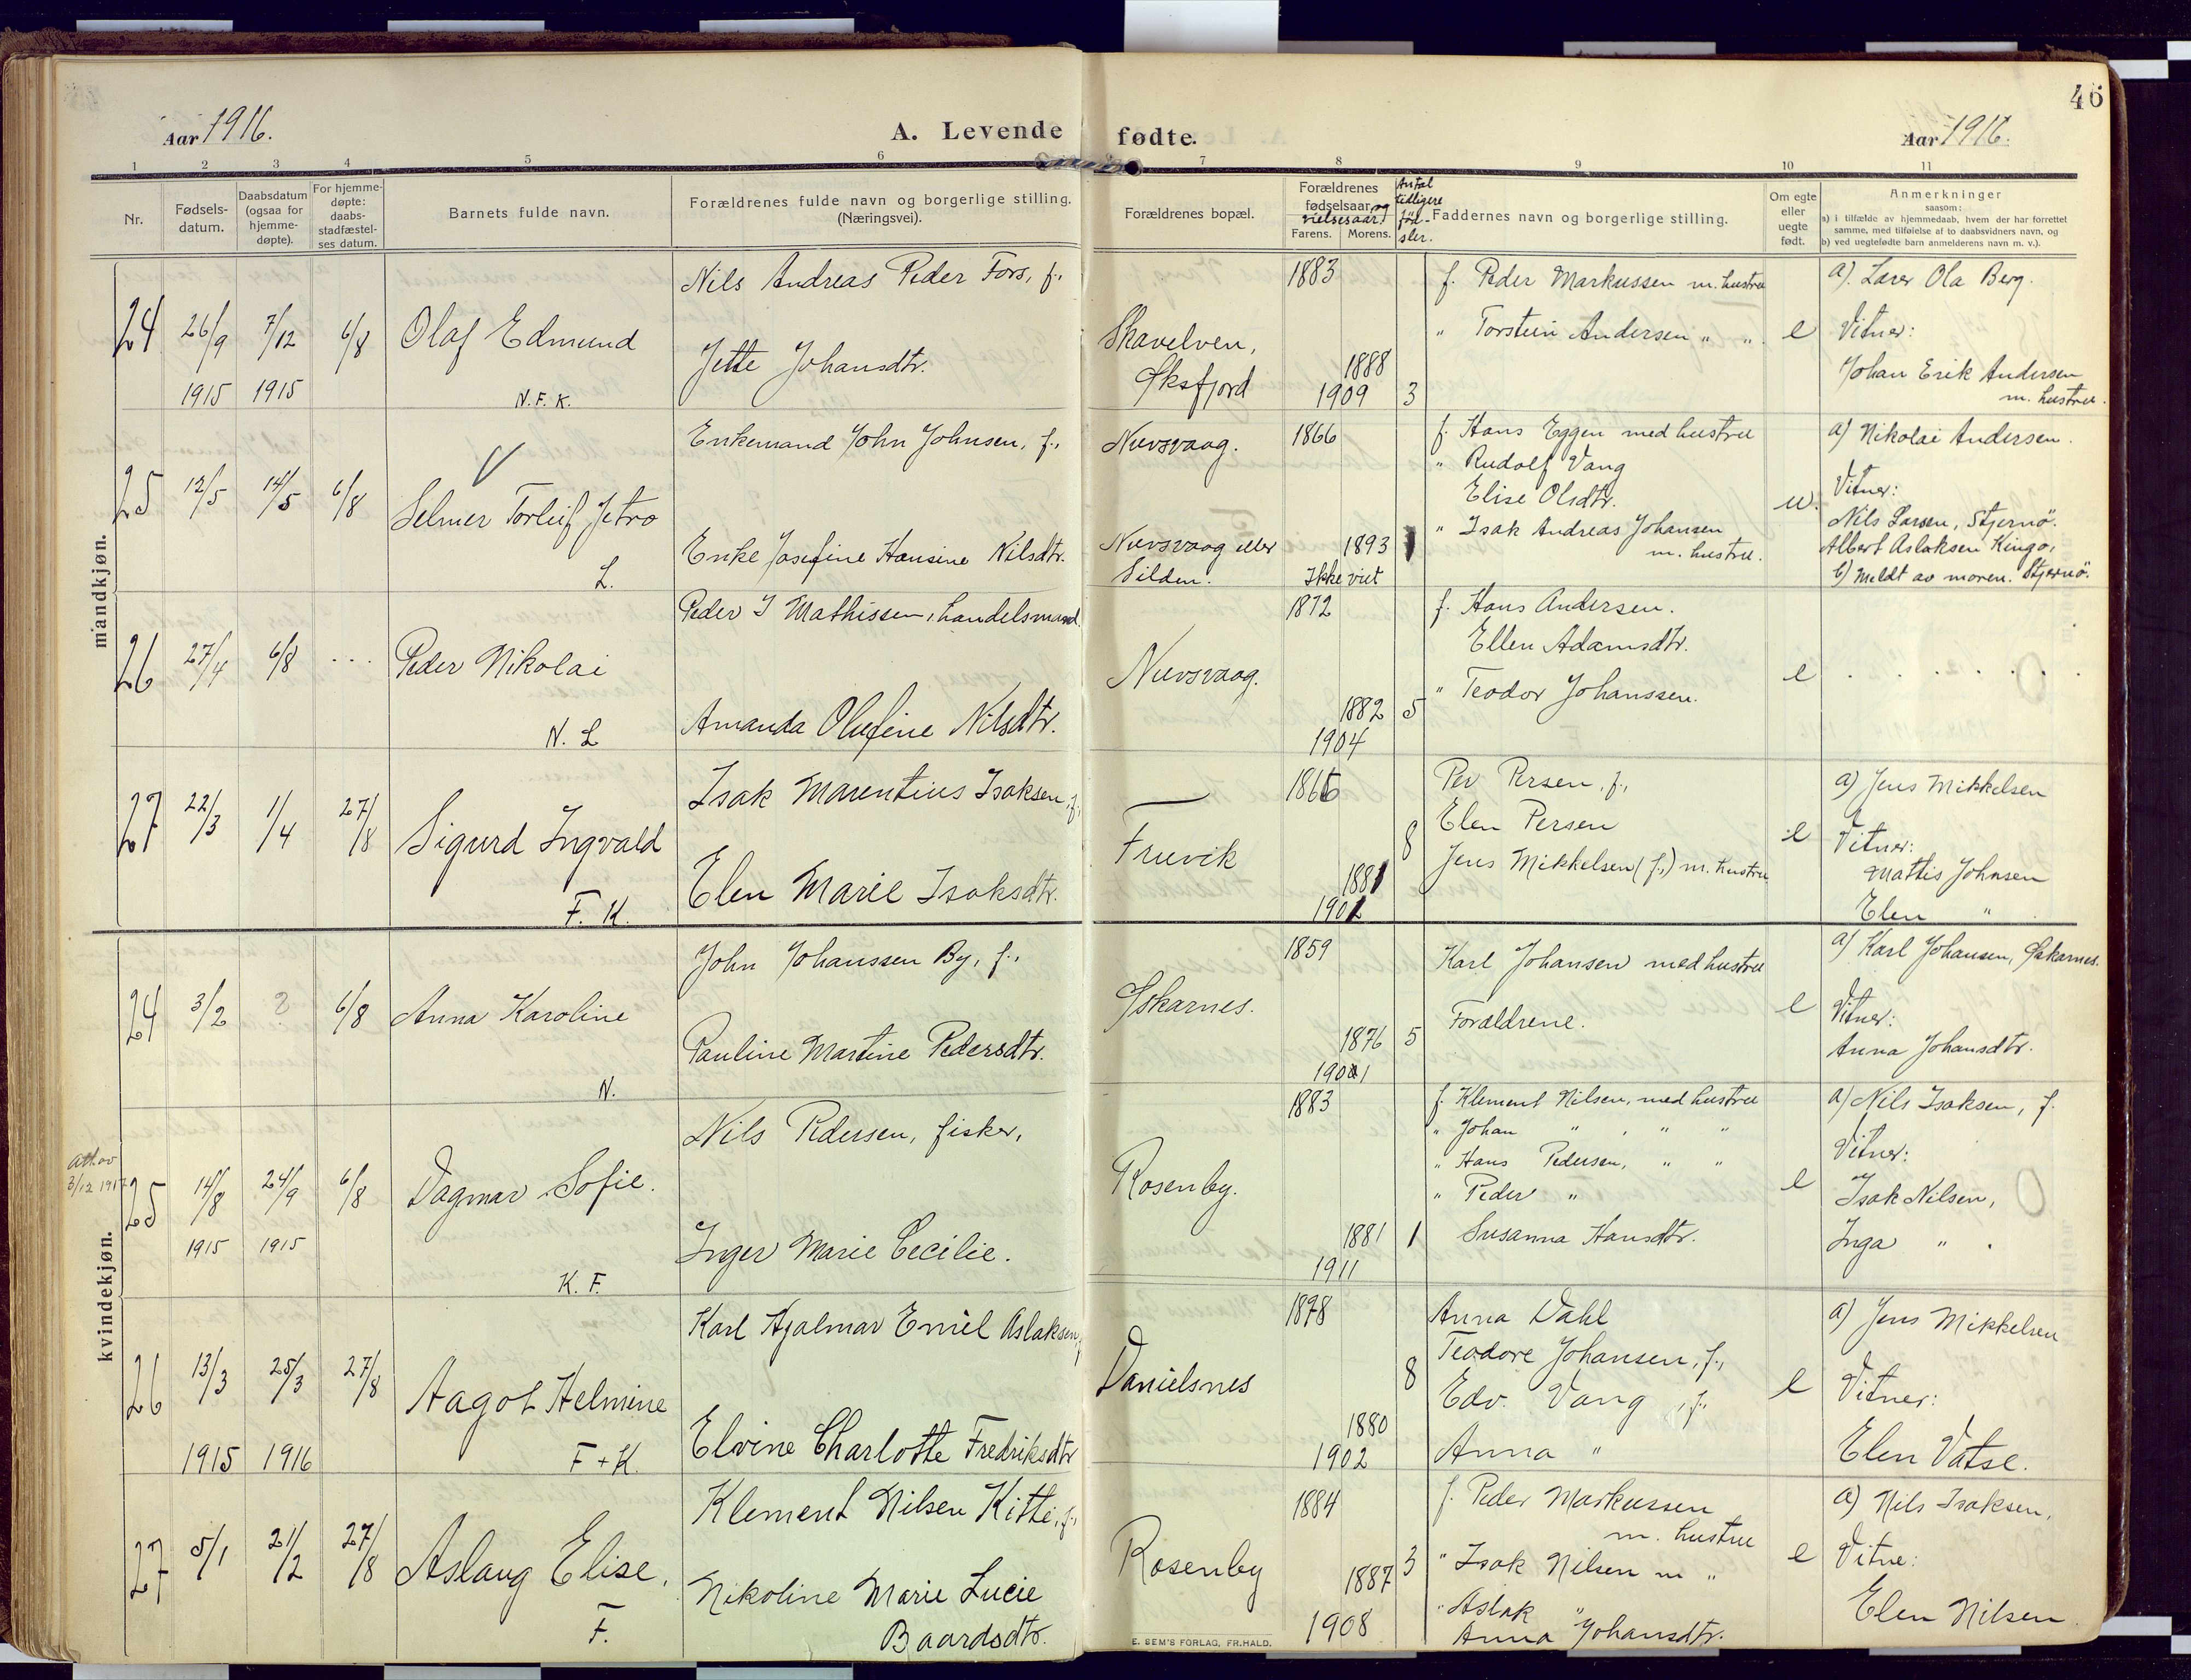 46
Aar 1916.
A. Levende fødte.
Aar 1916.
1 2 3 4 5 6 7 8 9 10 11
Nr.
Fødsels-
datum.
Daabsdatum
(ogsaa for
hjemme-
døpte).
For hjemme-
døpte:
daabs-
stadfæstel-
ses datum.
Barnets fulde navn.
Forældrenes fulde navn og borgerlige stilling.
(Næringsvei).
Forældrenes bopæl.
Forældrenes
fødselsaar og
vielsesaar
Farens. Morens.
Antal
tidligere
fød-
sler.
Faddernes navn og borgerlige stilling.
Om egte
eller
uegte
født.
Anmerkninger
saasom:
a) i tilfælde av hjemmedaab, hvem der har forrettet
samme, med tilføielse af to daabsvidners navn, og
b) ved uegtefødte barn anmelderens navn m. v.).
mandkjøn.
24 26/9 1915 7/12 1915 6/8
Olaf Edmund
N. F. K.
Nils Andreas Peder Fors, f.,
Jette Johansdtr.
Skavelven,
Øksfjord
1883
1888
1909 3
f. Peder Markussen m. hustru
" Torstein Andersen " "
e
a). Lærer Ola Berg.
Vitner:
Johan Erik Andersen
m. hustru.
25 12/5 14/5 6/8
Selmer Torleif Jetro
L.
Enkemand John Johnsen, f.,
Enke Josefine Hansine Nilsdtr.
Nuvsvaag.
Nuvsvaag eller
Silden.
1866
1893 1
Ikke viet
f. Hans Eggen med hustru
" Rudolf Vang
Elise Olsdtr.
" Isak Andreas Johansen
m. hustru.
u.
a) Nikolai Andersen.
Vitner:
Nils Larsen, Stjernø.
Albert Aslaksen Kingo,
b) Meldt av moren. Stjernø.
26 27/4 6/8 ...
Peder Nikolai
N. L
Peder I Mathissen, handelsmand.
Amanda Olufine Nilsdtr.
Nuvsvaag.
1872
1882 5
1904
f. Hans Andersen.
Ellen Adamsdtr.
" Teodor Johanssen.
e
27 22/3 1/4 27/8
Sigurd Ingvald
F. K.
Isak Marentius Isaksen, f.
Elen Marie Isaksdtr.
Fruvik
1866
8
1881
1902
Per Persen, f.,
Elen Persen
Jens Mikkelsen (f.,) m. hustru
e
a) Jens Mikkelsen
Vitner:
Mattis Johnsen
Elen "
kvindekjøn.
24 3/2 ? 6/8
Anna Karoline
N.
John Johanssen By, f.,
Pauline Martine Pedersdtr.
Øskarnes.
1859
1876 5
1901
Karl Johansen med hustru
Forældrene.
e
a) Karl Johansen, Øskarnes.
Vitner:
Anna Johansdtr.
Att. av
3/12 1917
25 14/8 1915 24/9 1915 6/8
Dagmar Sofie.
K. F.
Nils Pedersen, fisker,
Inger Marie Cecilie.
Rosenby.
1883
1881 1
1911
f. Klement Nilsen, med hustru
" Johan " , " "
" Hans Pedersen, " "
" Peder "
Susanna Hansdtr.
e
a) Nils Isaksen, f.
Vitner:
Isak Nilsen,
Inga " .
26 13/3 1915 25/3 1916 27/8
Aagot Helmine
F + K.
Karl Hjalmar Emil Aslaksen, f
Elvine Charlotte Fredriksdtr
Danielsnes
1878
8
1880
1902
Anna Dahl
Teodore Johansen, f.,
Edv. Vang, f.,
Anna "
e
a) Jens Mikkelsen
Vitner:
Elen Vatse.
27 5/1 21/2 27/8
Aslaug Elise.
F.
Klement Nilsen Kitti, f.,
Nikoline Marie Lucie
Baardsdtr.
Rosenby
1884
1887 3
1908
f. Peder Markussen
m. hustru
" Isak Nilsen m "
" Aslak "
Anna Johansdtr.
e
a) Nils Isaksen,
Vitne:
Elen Nilsen
E. SEM'S FORLAG, FR.HALD.